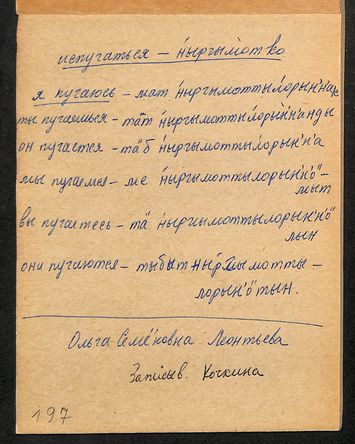 испугаться – ныргымотко
я пугаюсь – мат ныргымоттылорын'н'ак
ты пугаешься – тат ныргымоттылорын'н'анды
он пугается – тӓб ныргымоттылорын'н'а
мы пугаемся – ме ныргымоттылорын'н'ӧ –
мыт
вы пугаетесь – тӓ ныргымоттылорын'н'ӧ
лын
они пугаются – тыбыт ныргымотты –
лорын'ӧтын.
Ольга Семёновна Леонтьева
Записыв. Кочкина
197